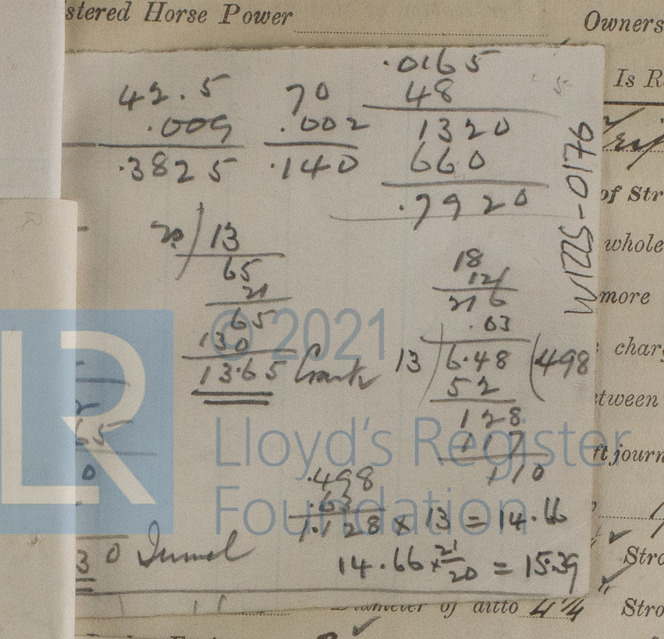 stered Horse Power
Owners
Is R
42.5
.009
.3825
70
.002
.140
.0165
48
1320
660
.7920
W1225-0176
of Str
whole
more
charg
etween
ft journ
Stro
Stro
20 13
65
21
65
130
13.65 Crank
18
12
216
.03
13 6.48 (498
52
128
117
110
.498
.63
1.128 x 13 = 14.66
14.66 x 21/20 = 15.39
65
0
30 Tunnel
Diameter of ditto 4¼
LR
© 2021
Lloyd's Register
Foundation